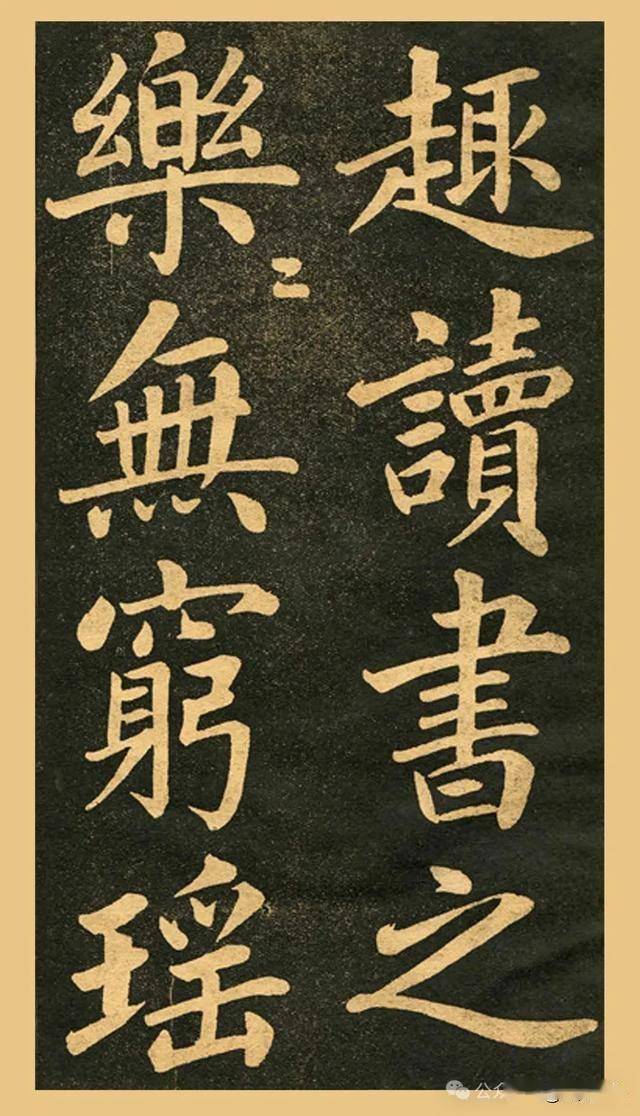 趣讀書之
樂〻無窮瑶
公众